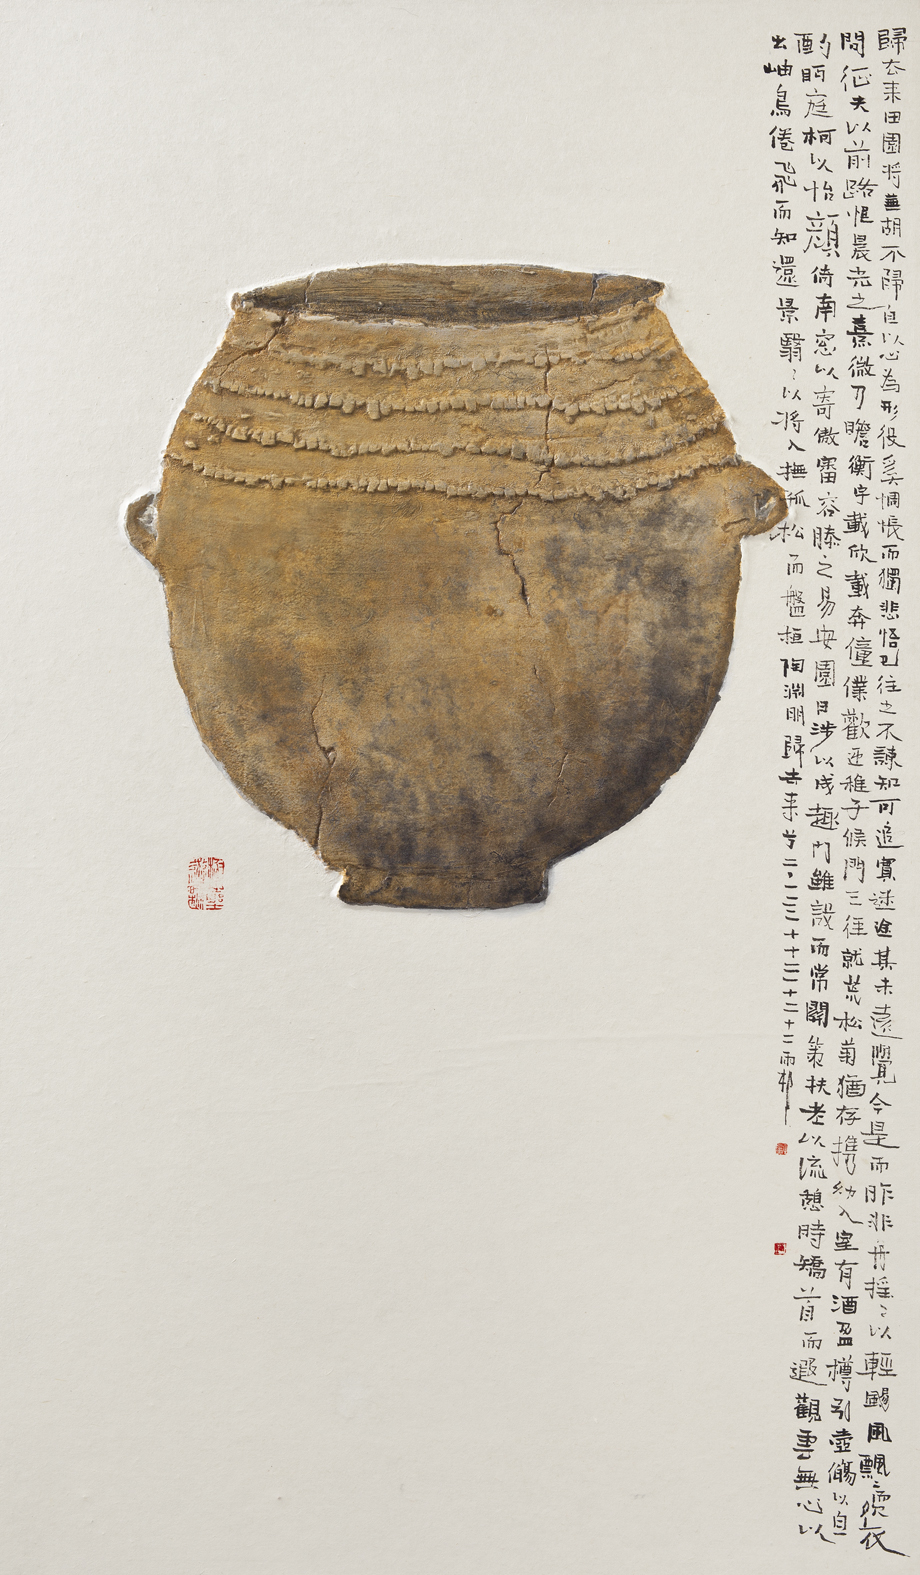 歸去来田園将蕪胡不歸自以心為形役奚惆悵而獨悲悟已往之不諫知可追實迷途其未遠覺今是而昨非舟摇〻以輕颺風飄〻而吹衣
問征夫以前路恨晨光之熹微乃瞻衡宇載欣載奔僮僕歡迎稚子候門三徑就荒松菊猶存携幼入室有酒盈樽引壺觴以自
酌眄庭柯以怡顔倚南窓以寄傲審容膝之易安園日涉以成趣門雖設而常關策扶老以流憩時矯首而遐觀雲無心以
出岫鳥倦飛而知還景翳〻以将入撫孤松而盤桓陶淵明歸去来兮雨邨